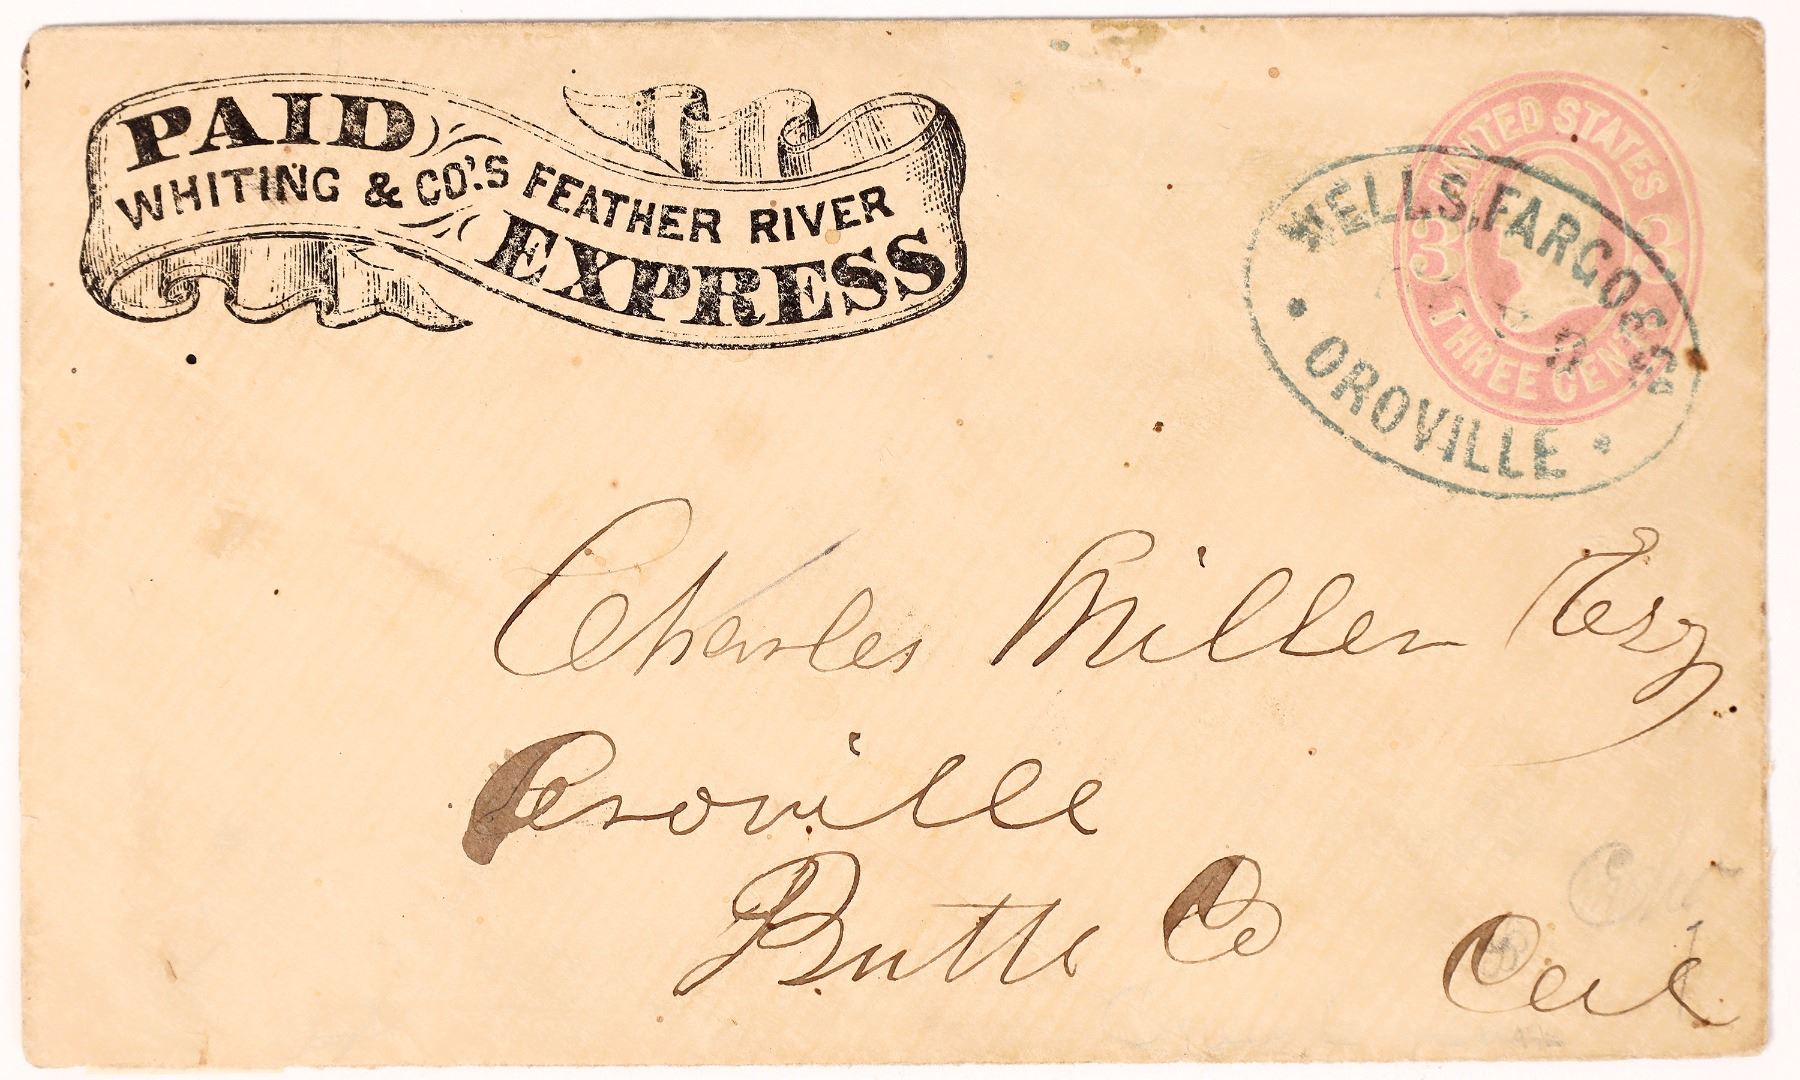 PAID
WHITING & CO'.S FEATHER RIVER
EXPRESS
UNITED STATES
3 3
THREE CENTS
WELLS, FARGO & Co.
OROVILLE
Charles Miller Esq
Oroville
Butte Co
Cal